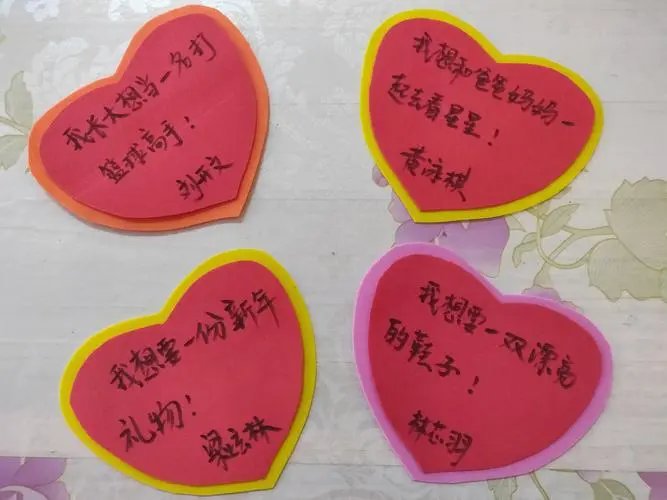 我长大想当一名打
篮球高手!
刘开文
我想和爸爸妈妈一
起去看星星!
黄泳棋
我想要一份新年
礼物!
梁玄林
我想要一双漂亮
的鞋子!
芯羽